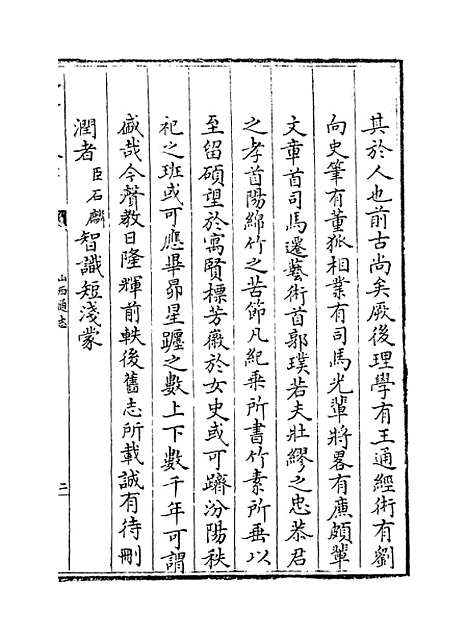 其於人也前古尚矣厥後理學有王通經術有劉
向史筆有董狐相業有司馬光輩將畧有廉頗輩
文章首司馬遷藝術首郭璞若夫壯繆之忠恭君
之孝首陽綿竹之苦節凡紀乗所書竹素所垂以
至留碩望於寓賢標芳徽於女史或可躋汾陽秩
祀之班或可應畢昴星躔之數上下數千年可謂
盛哉今聲教日隆輝前軼後舊志所載誠有待刪
潤者臣石麟智識短淺蒙
山西通志
二